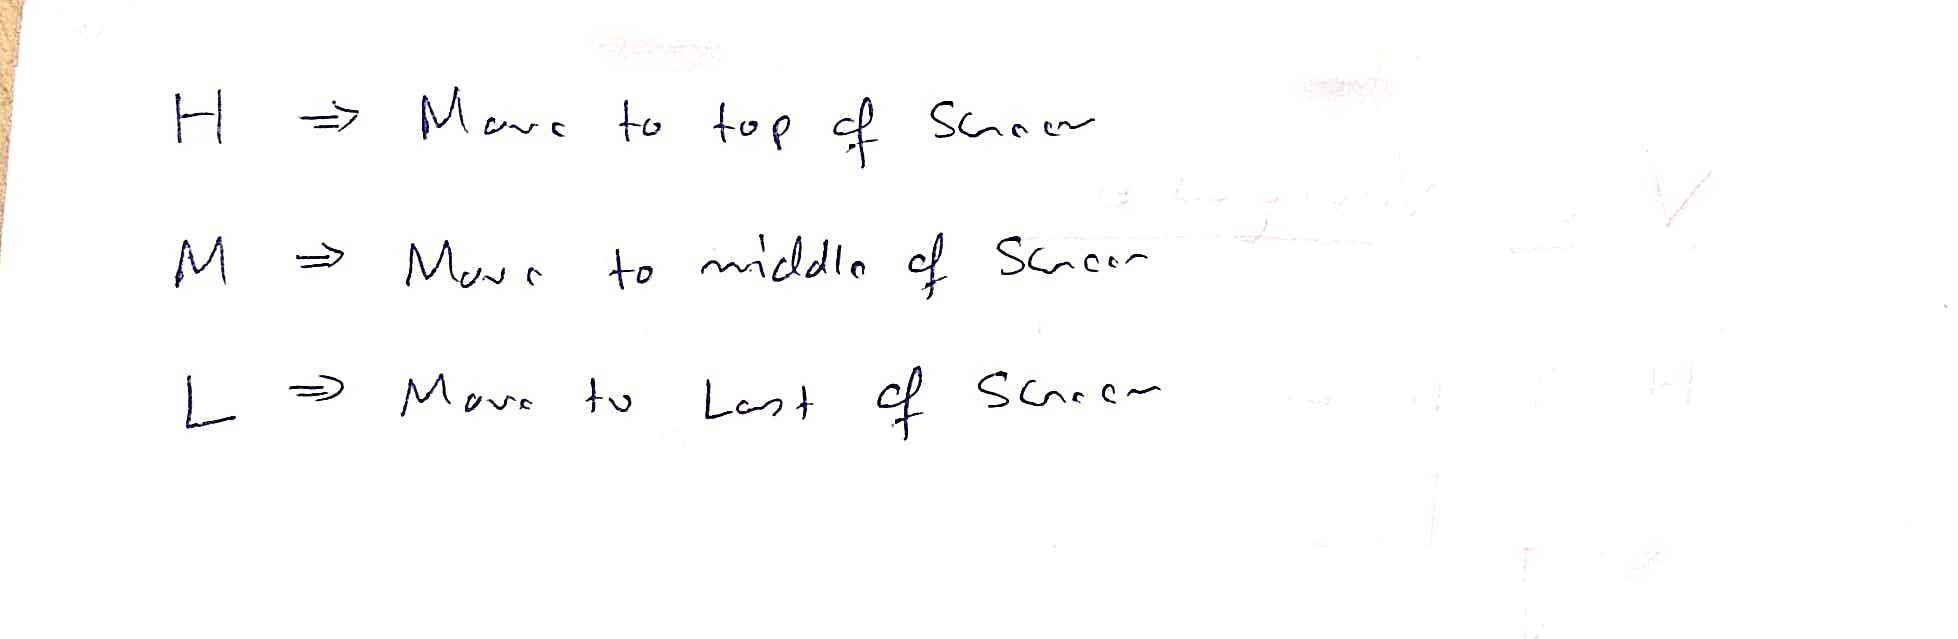 H ⇒ Move to top of Screen
M ⇒ Move to middle of Screen
L ⇒ Move to Last of Screen